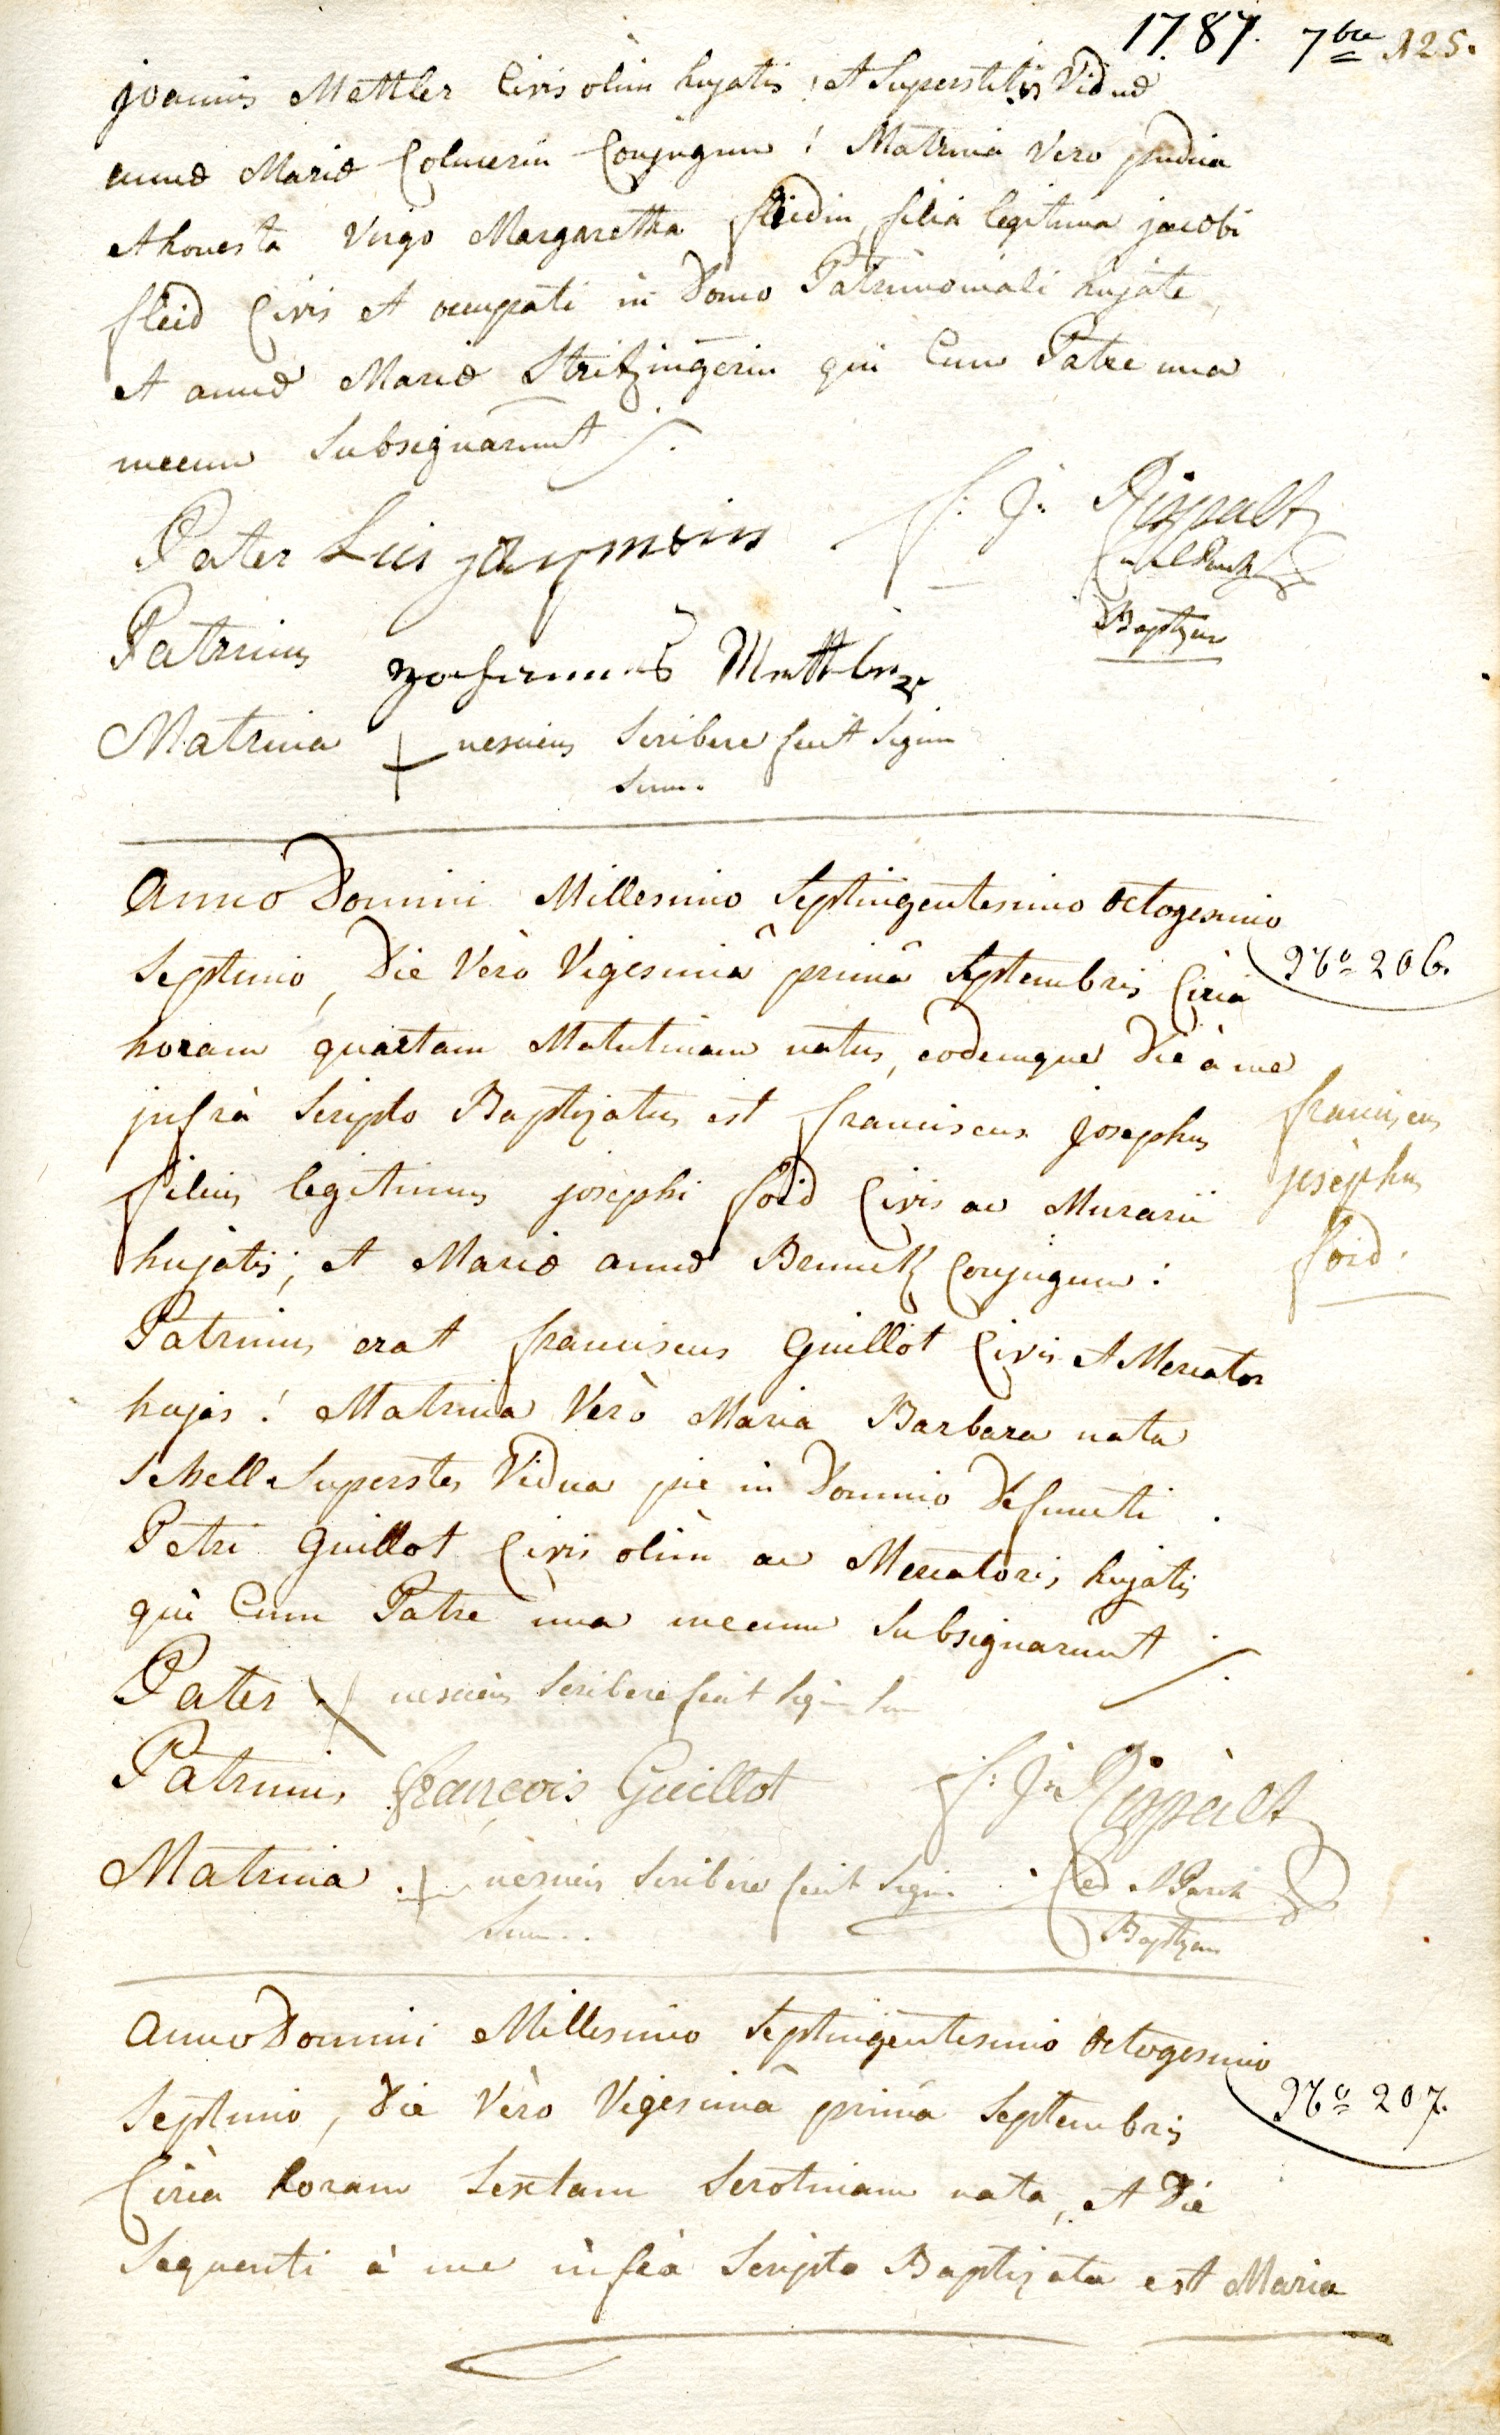 1787. 7bre 125.
joannis Mettler Civis olim hujatis, et Superstitis Viduæ
annæ Mariæ Colmerin Conjugum! Matrina Vero pudica
et honesta Virgo Margaretha fleidin, filia legitima jacobi
fleid Civis et occupati in Domo Patrimoniali hujate,
et annæ Mariæ Stritzingerin qui Cum Patre una
mecum Subsignarunt ./.
Pater
f: J: Rippalt
Patrinus
Baptizans
Matrina + nesciens Scribere fecit Signum
Suum.
Anno Domini Millesimo Septingentesimo octogesimo
Septimo, Die Verò Vigesimâ primâ Septembris Circa
No 206.
horam quartam Matutinam natus, eodemque Die à me
jnfrà Scripto Baptizatus est franciscus josephus
franciscus
filius legitimus josephi foid Civis ac Murarii
josephus
hujatis; et Mariæ annæ Bemetz Conjugum:
foid.
Patrinus erat franciscus Guillot Civis et Mercator
hujas! Matrina Verò Maria Barbara nata
Schell Superstes Vidua pie in Domino Defuncti
Petri Guillot Civis olim ac Mercatoris hujatis
qui Cum Patre una mecum Subsignarunt ./.
Pater + nesciens Scribere fecit Sign Su
Patrinus françois Guillot
f: J: Rippalt
Matrina + nesciens Scribere fecit Sign
Suum..
Baptizans
Anno Domini Millesimo Septingentesimo octogesimo
Septimo, Die Vèro Vigesimâ primâ Septembris
No 207.
Circa horam Sextam Serotinam nata, et Die
Sequenti à me infrà Scripto Baptizata est Maria